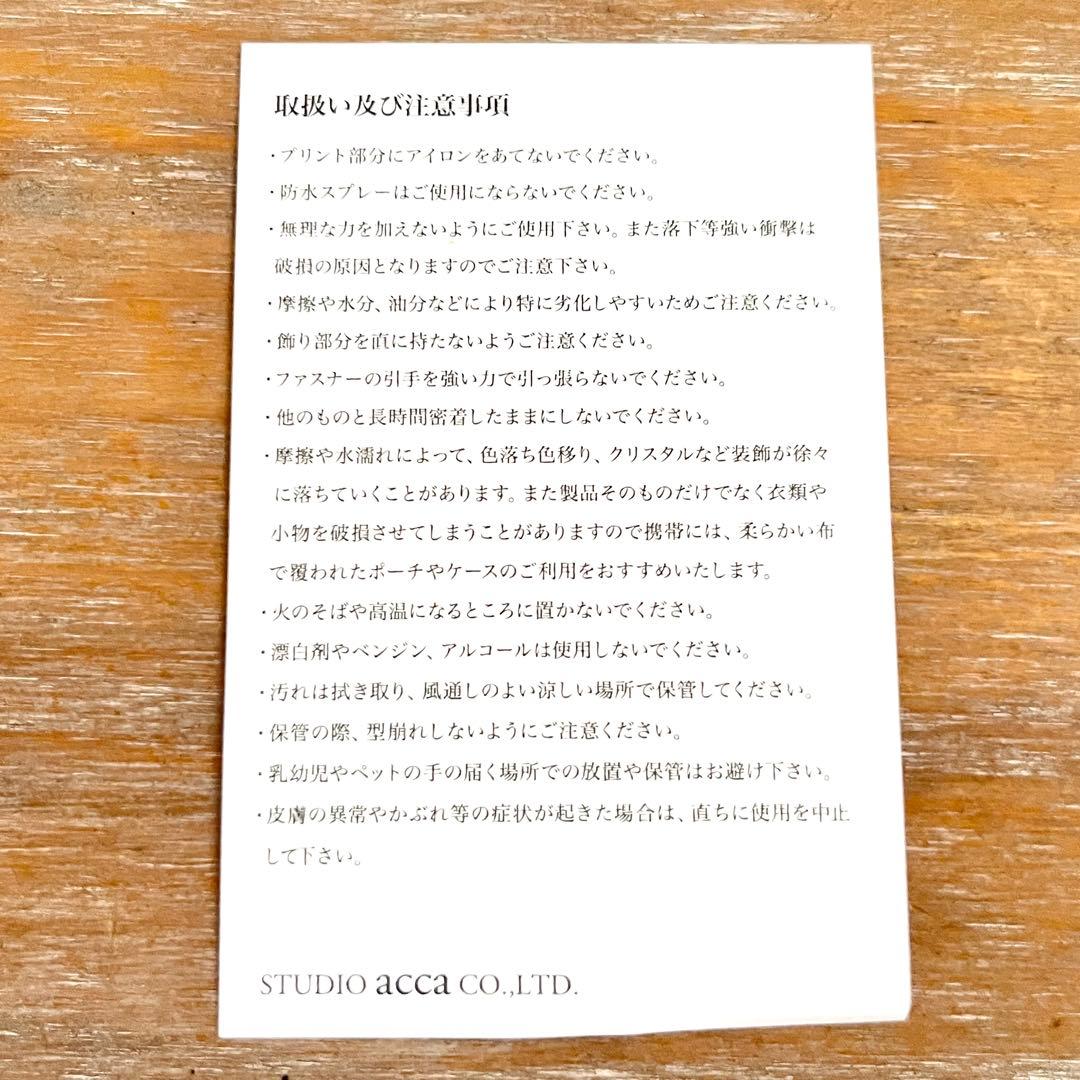 取扱い及び注意事項
・プリント部分にアイロンをあてないでください。
・防水スプレーはご使用にならないでください。
・無理な力を加えないようにご使用下さい。また落下等強い衝撃は
破損の原因となりますのでご注意下さい。
・摩擦や水分、油分などにより特に劣化しやすいためご注意ください。
・飾り部分を直に持たないようご注意ください。
・ファスナーの引手を強い力で引っ張らないでください。
・他のものと長時間密着したままにしないでください。
・摩擦や水濡れによって、色落ち色移り、クリスタルなど装飾が徐々
に落ちていくことがあります。また製品そのものだけでなく衣類や
小物を破損させてしまうことがありますので携帯には、柔らかい布
で覆われたポーチやケースのご利用をおすすめいたします。
・火のそばや高温になるところに置かないでください。
・漂白剤やベンジン、アルコールは使用しないでください。
・汚れは拭き取り、風通しのよい涼しい場所で保管してください。
・保管の際、型崩れしないようにご注意ください。
・乳幼児やペットの手の届く場所での放置や保管はお避け下さい。
・皮膚の異常やかぶれ等の症状が起きた場合は、直ちに使用を中止
して下さい。
STUDIO acca CO.,LTD.